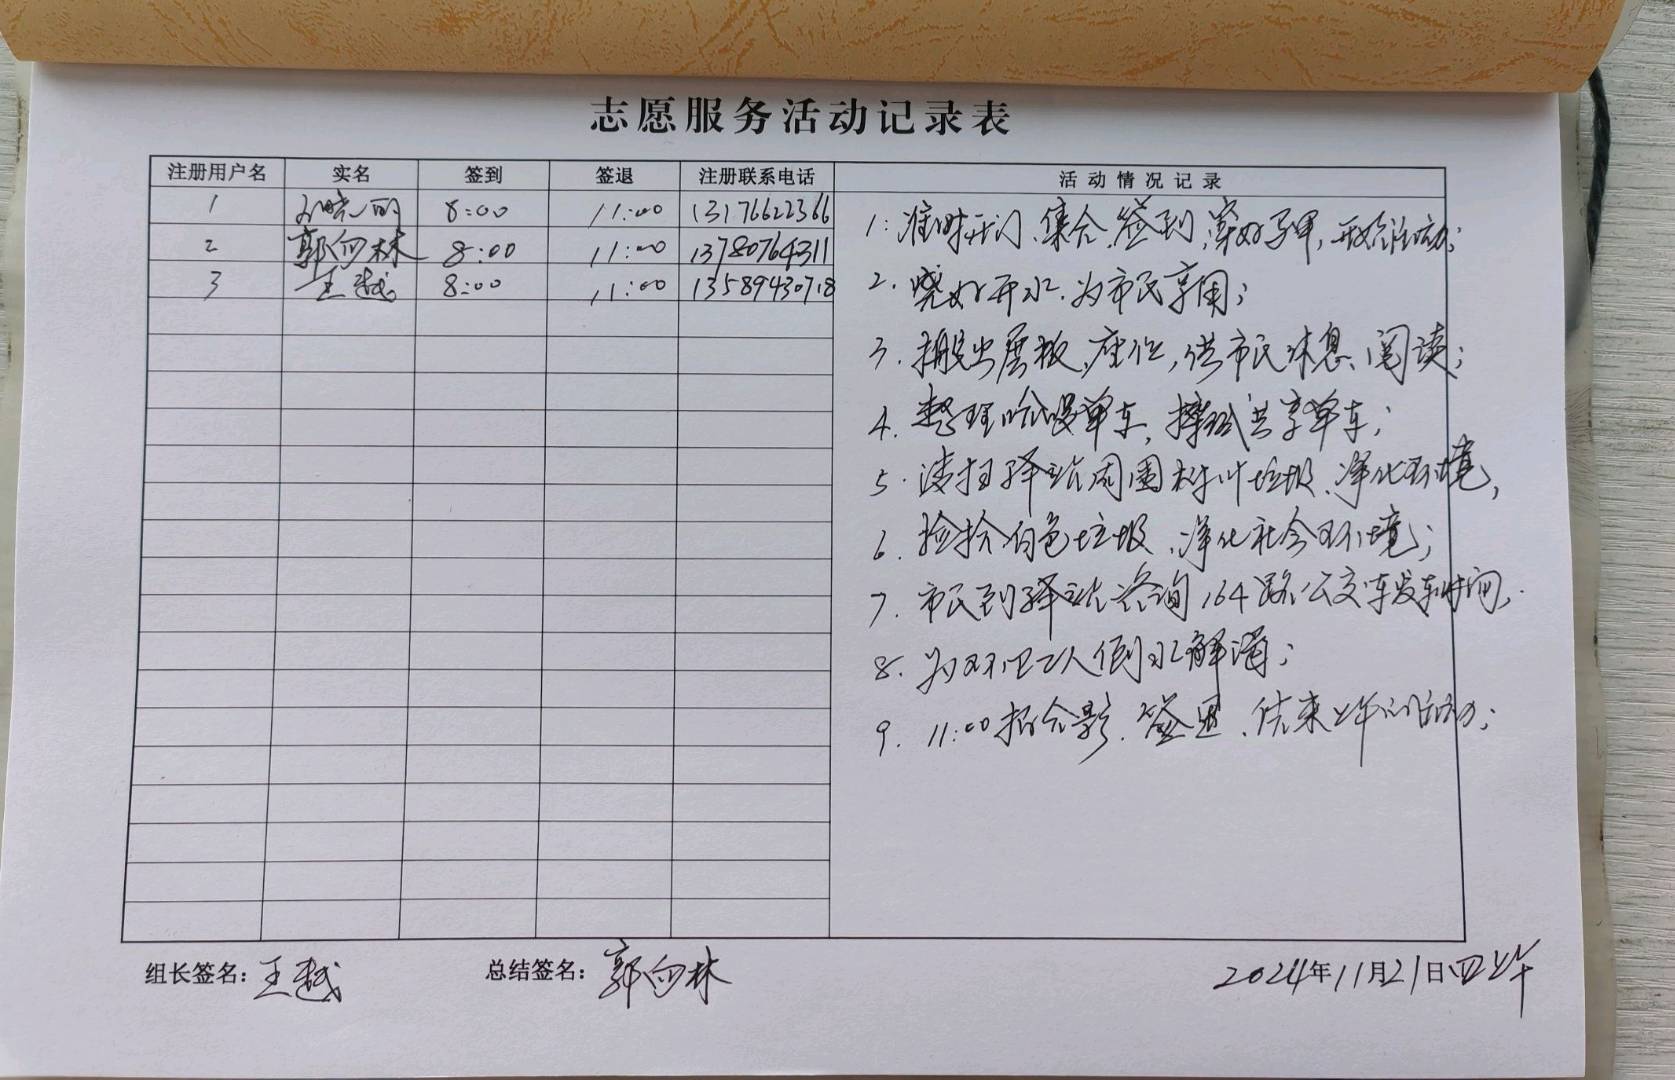 志愿服务活动记录表
注册用户名 实名 签到 签退 注册联系电话 活动情况记录
1 8:00 11:00 13176622366
2 郭向林 8:00 11:00 13780764311
3 王越 8:00 11:00 13589430718
1. 准时开门、集合、签到、穿好马甲,开始活动;
2. 烧好开水、为市民享用;
3. 搬出展板、座位,供市民休息、阅读;
4. 整理哈啰单车、摆放共享单车;
5. 清扫驿站周围树叶垃圾、净化环境,
6. 捡拾白色垃圾、净化社会环境;
7. 市民到驿站咨询164路公交车发车时间,
8. 为环卫工人倒水解渴;
9. 11:00拍合影、签退、结束上午的活动;
组长签名:王越 总结签名:郭向林 2024年11月21日四上午